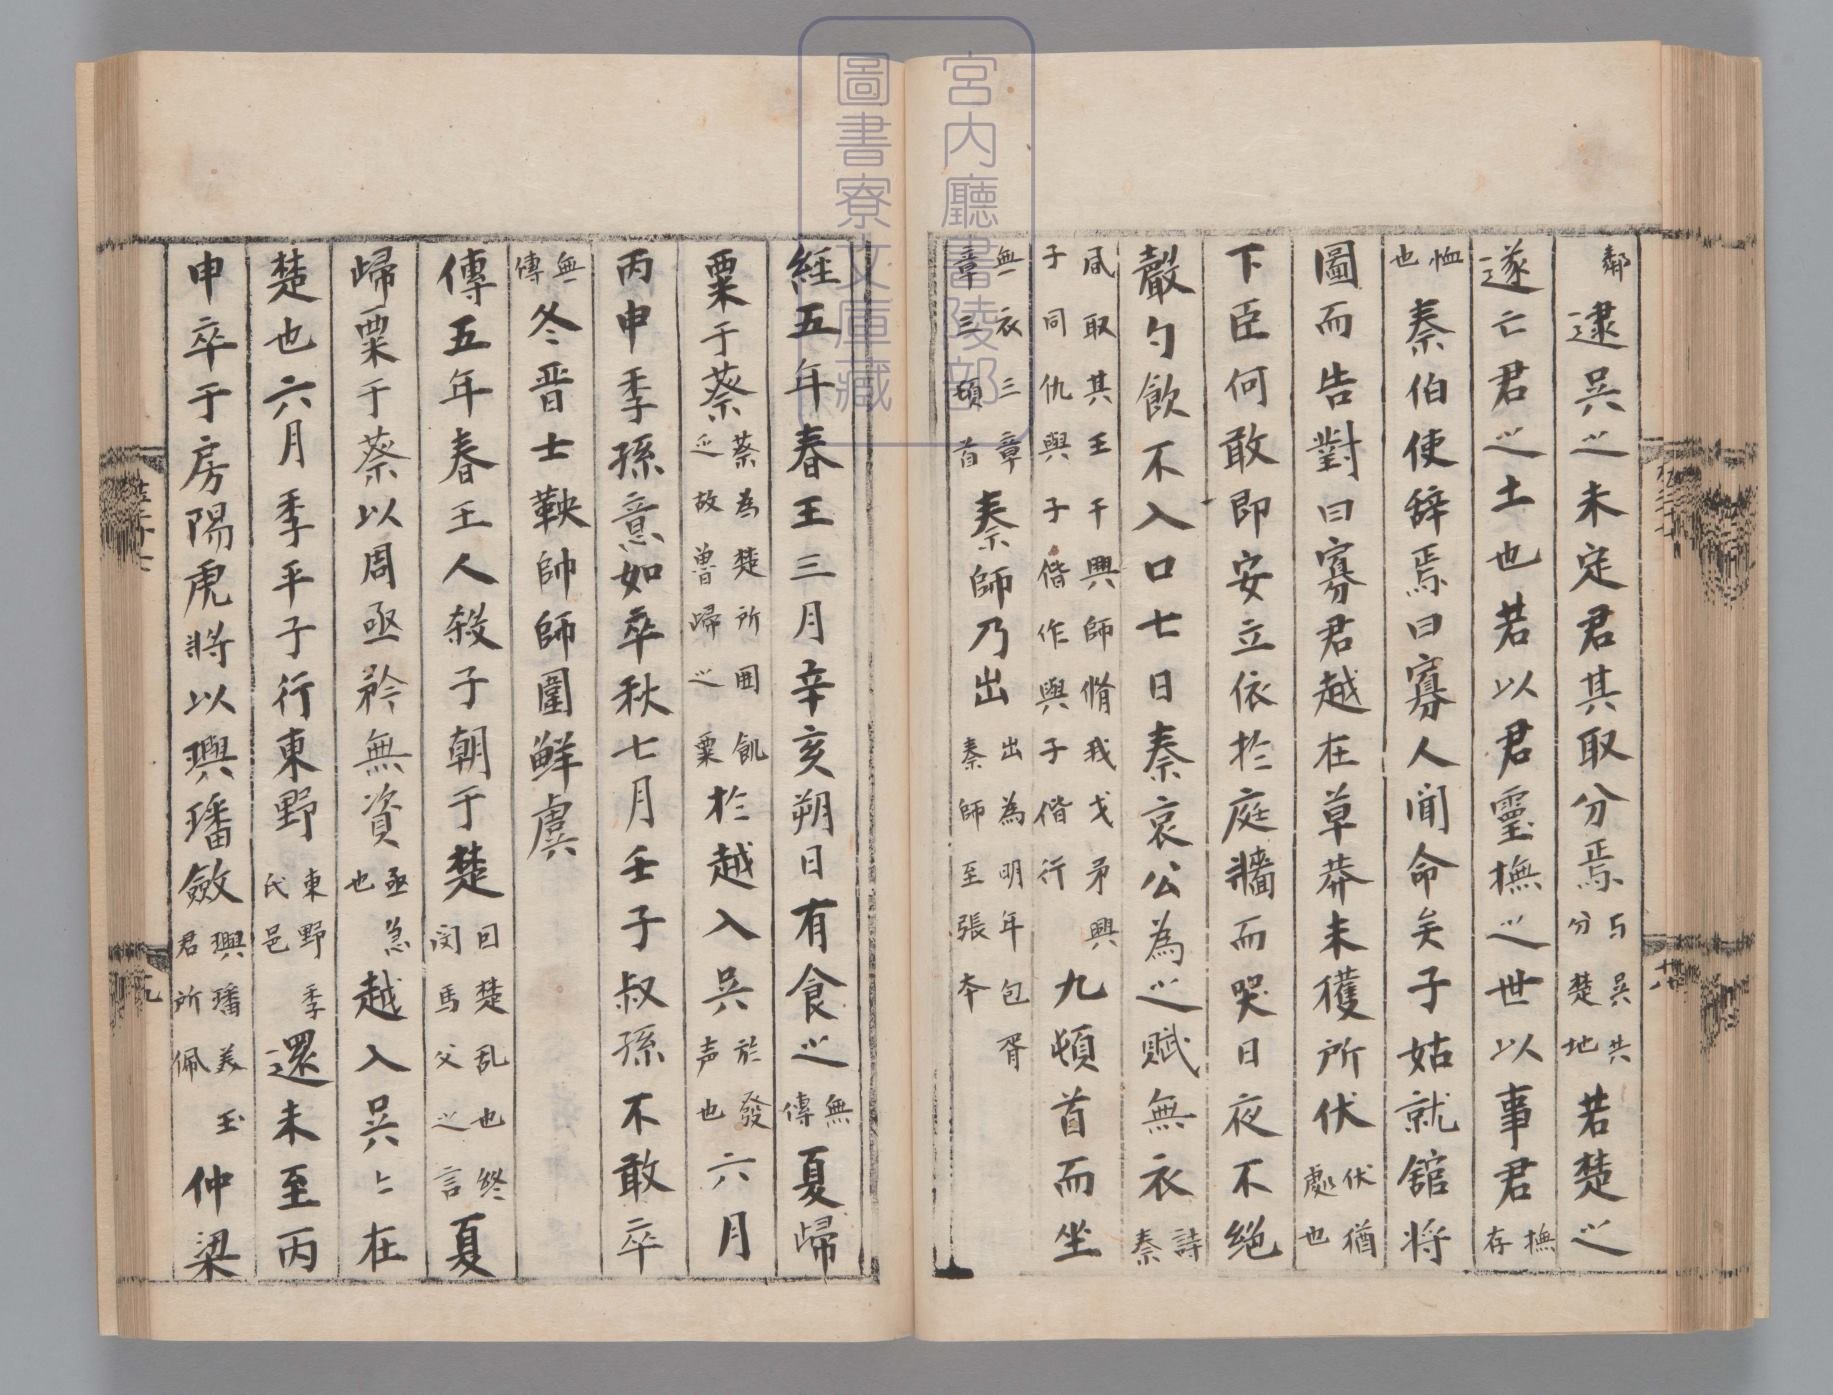 鄰逮吳之未定君其取分焉与吳共分楚地若楚之
遂亡君之土也若以君靈撫之世以事君撫存
恤也秦伯使辞焉曰寡人聞命矣子姑就舘将
圖而告對曰寡君越在草莽未獲所伏伏猶處也
下臣何敢即安立依於庭牆而哭日夜不絶
聲勺飲不入口七日秦哀公為之賦無衣詩秦
風取其王于興師脩我戈矛興子同仇與子偕作與子偕行九頓首而坐
無衣三章章三頓首秦師乃出出為明年包胥秦師至張本
経五年春王三月辛亥朔日有食之無傳夏歸
粟于蔡蔡為楚所囲飢乏故魯歸之粟於越入吳於發声也六月
丙申季孫意如卒秋七月壬子叔孫不敢卒
無傳冬晋士鞅帥師圍鮮虞
傳五年春王人殺子朝于楚因楚乱也終閔馬父之言夏
歸粟于蔡以周亟矜無資亟急也越入吳〻在
楚也六月季平子行東野東野季氏邑還未至丙
申卒于房陽虎將以璵璠斂璵璠美玉君所佩仲梁
宮内廳書陵部
圖書寮文庫藏